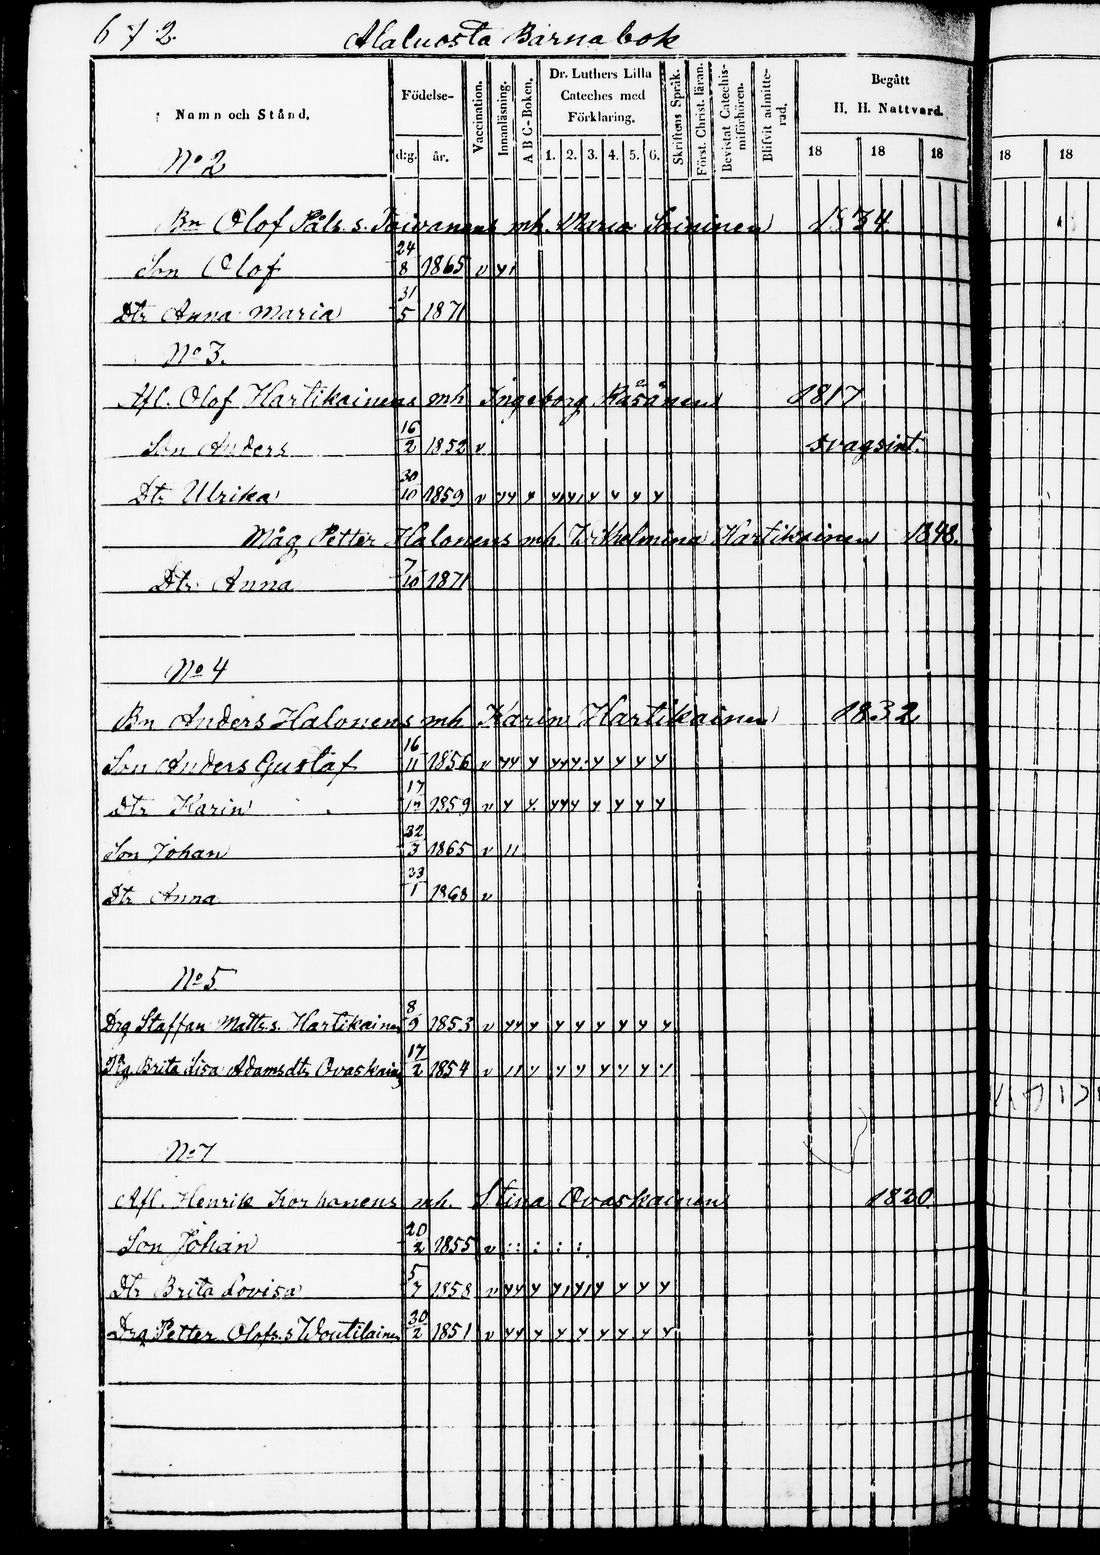 672. Alaluosta Barnabok
Namn och Stånd.
Födelse-
d:g. år.
Vaccination.
Innanläsning.
A B C-Boken.
Dr. Luthers Lilla
Cateches med
Förklaring.
1. 2. 3. 4. 5. 6.
Skriftens Språk.
Först. Christ. läran.
Bevistat Catechis-
miförhören.
Blifvit admitte-
rad.
Begått
H. H. Nattvard.
18 18 18 18 18
No 2
Bn Olof Påls. s. Toivanens mh. Maria Soininen 1834.
Son Olof 24/8 1865 v
Dtr Anna Maria 31/5 1871
No 3.
Afl. Olof Hartikainens mh Ingeborg Räsänen 1817
Son Anders 16/2 1852 v svagsint.
Dtr Ulrika 30/10 1859 v
Måg Petter Halonens mh. Wilhelmina Hartikainen 1848.
Dtr Anna 7/10 1871
No 4
Bn Anders Halonens mh Karin Hartikainen 1832
Son Anders Gustaf 16/11 1856 v
Dtr Karin 17/ 1859 v
Son Johan 22/3 1865 v
Dtr Anna 1868 v
No 5
Drg Staffan Matts s. Hartikainen 8/9 1853 v
Pig. Brita Lisa Adamsdtr Ovaskain 17/2 1854 v
No 7
Afl. Henrik Korhonens mh. Stina Ovaskainen 1820.
Son Johan 20/2 1855 v
Dtr Brita Lovisa 5/7 1858 v
Drg Petter Olofs. s Woutilainen 30/2 1851 v